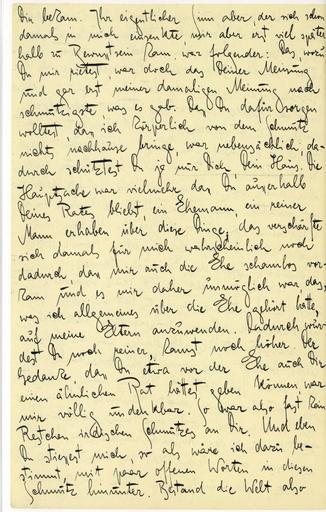 Dir bekam. Ihr eigentlicher Sinn aber, der sich schon
damals in mich einsenkte mir aber erst viel später
halb zu Bewusstsein kam war folgender: Das wozu
Du mir rietest war doch das Deiner Meinung
und gar erst meiner damaligen Meinung nach
schmutzigste was es gab. Dass Du dafür sorgen
wolltest dass ich körperlich von dem Schmutz
nichts nachhause bringe war nebensächlich, da-
durch schütztest Du ja nur Dich Dein Haus. Die
Hauptsache war vielmehr dass Du ausserhalb
Deines Rates bliebst, ein Ehemann, ein reiner
Mann erhaben über diese Dinge; das verschärfte
sich damals für mich wahrscheinlich noch
dadurch dass mir auch die Ehe schamlos vor-
kam und es mir daher unmöglich war das,
was ich allgemeines über die Ehe gehört hatte,
auf meine Eltern anzuwenden. Dadurch wur-
dest Du noch reiner, kamst noch höher. Der
Gedanke dass Du etwa vor der Ehe auch Dir
einen ähnlichen Rat hättest geben können war
mir völlig undenkbar. So war also fast kein
Restchen irdischen Schmutzes an Dir. Und eben
Du stiessest mich, so als wäre ich dazu be-
stimmt, mit paar offenen Worten in diesen
Schmutz hinunter. Bestand die Welt also